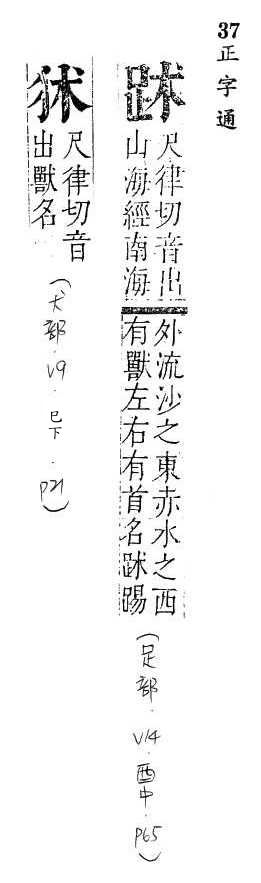 37正字通
䟣
尺律切音出
山海經南海
外流沙之東赤水之西
有獸左右有首名䟣踢
(足部.V14.酉中.P65)
尺律切音
出獸名
(犬部.V9.巳下.P21)